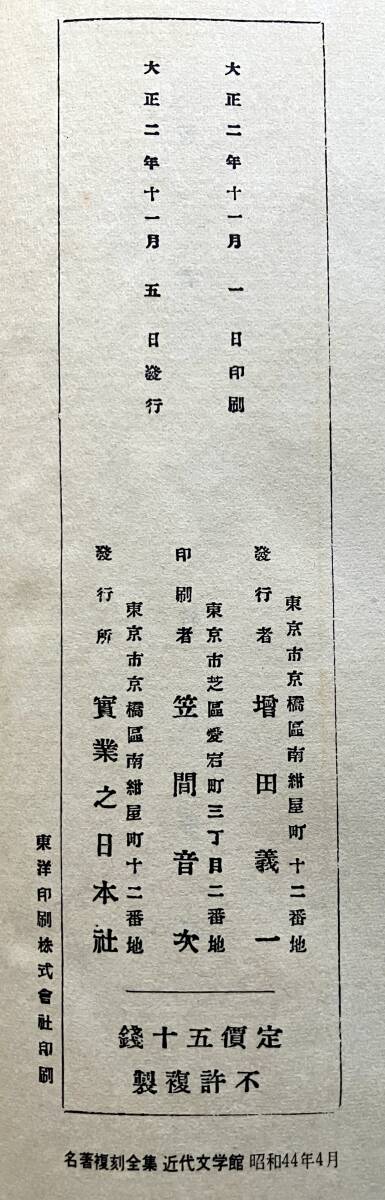 大正二年十一月一日印刷
大正二年十一月五日發行
東京市京橋區南紺屋町十二番地
發行者 增田義一
東京市芝區愛宕町三丁目二番地
印刷者 笠間音次
東京市京橋區南紺屋町十二番地
發行所 實業之日本社
定價五十錢
不許複製
東洋印刷株式會社印刷
名著複刻全集 近代文学館 昭和44年4月